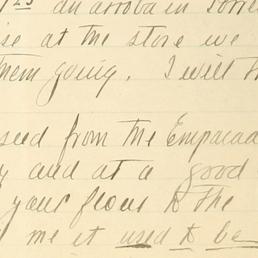 1 25 an arroba in Torre
se at the store we
them going. I will
seed from the Emparad
y and at a good
your flour to the
me it used to be